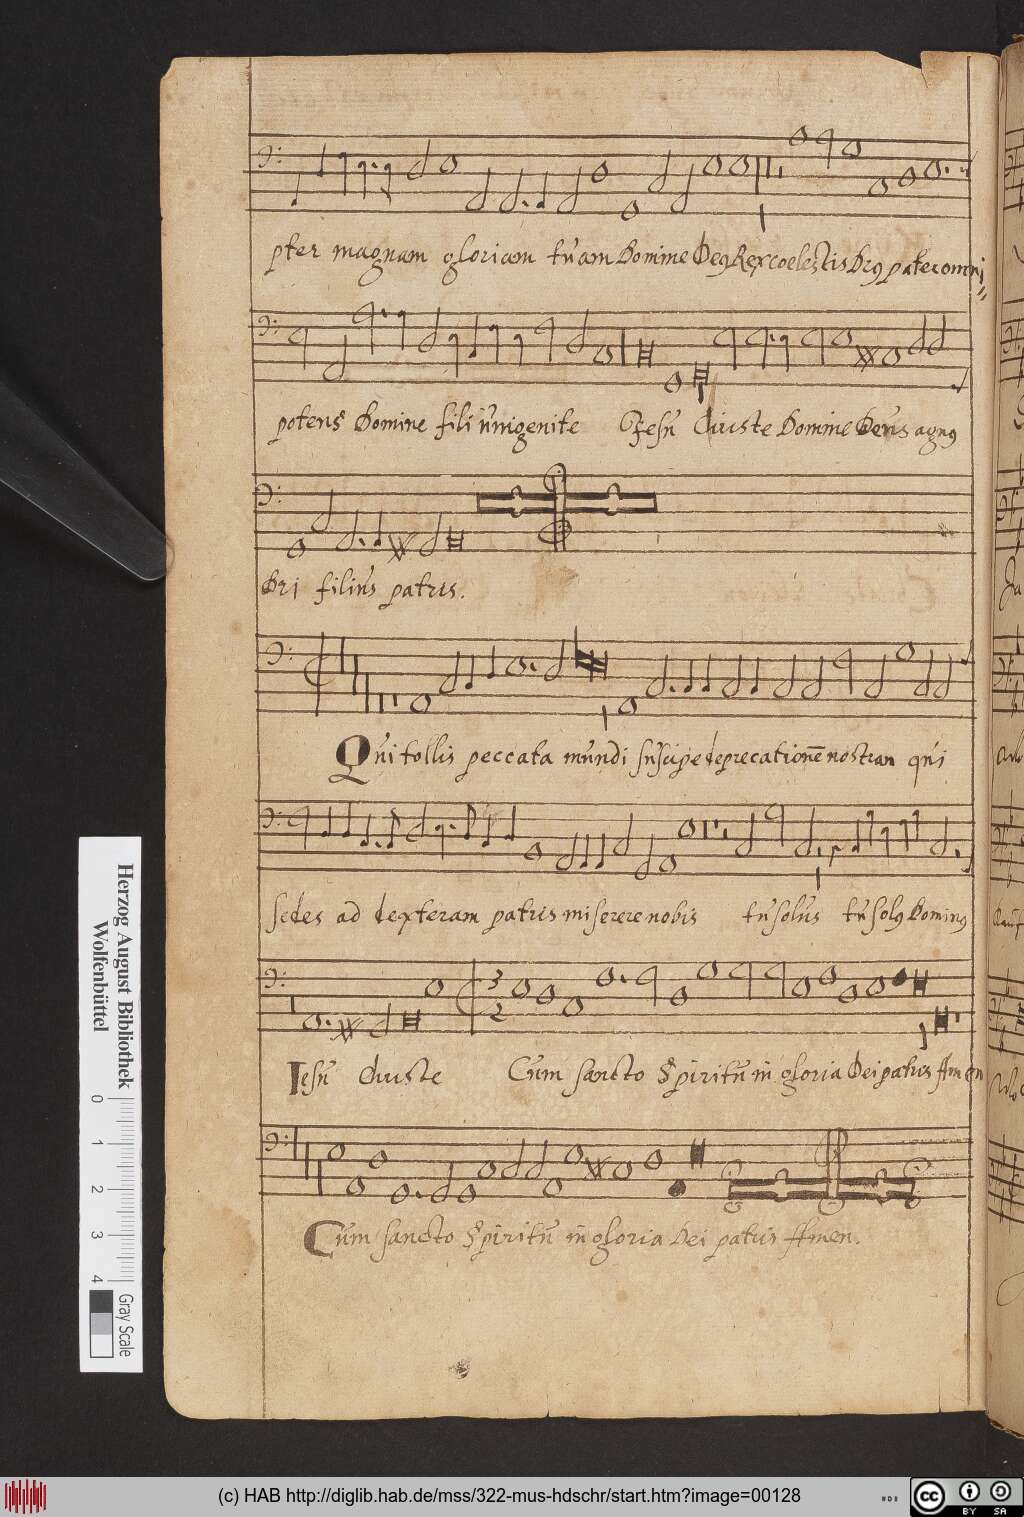 pter magnam gloriam tuam Domine Deq Rex coelestis Drq pater omni
potens Domine fili unigenite Jesu Christe Domine Deus agnq
Dei filius patris.
Qui tollis peccata mundi suscipe deprecationē nostram qui
sedes ad dexteram patris miserere nobis tu solus tu solq Dominq
3
2
Iesu Christe Cum sancto Spiritu in gloria Dei patris Amen
Cum sancto Spiritu in gloria Dei patris Amen.
Herzog August Bibliothek
Wolfenbüttel
0 1 2 3 4
Gray Scale
(c) HAB http://diglib.hab.de/mss/322-mus-hdschr/start.htm?image=00128
cc BY SA